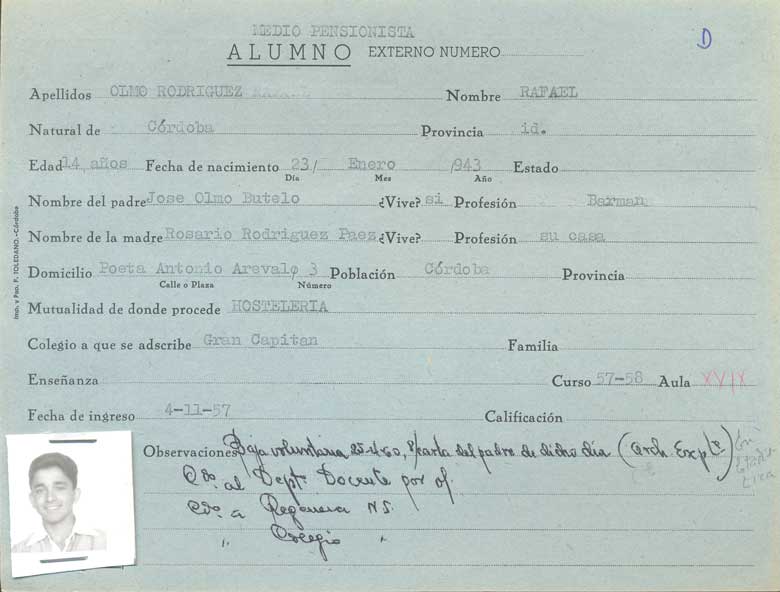 MEDIO PENSIONISTA
ALUMNO EXTERNO NUMERO D
Apellidos OLMO RODRIGUEZ Nombre RAFAEL
Natural de Córdoba Provincia id.
Edad 14 años Fecha de nacimiento 23/ Enero /943 Estado
Día Mes Año
Nombre del padre Jose Olmo Butelo ¿Vive? si Profesión Barman
Nombre de la madre Rosario Rodriguez Paez ¿Vive? Profesión su casa
Domicilio Poeta Antonio Arevalo 3 Población Córdoba Provincia
Calle o Plaza Número
Mutualidad de donde procede HOSTELERIA
Colegio a que se adscribe Gran Capitan Familia
Enseñanza Curso 57-58 Aula XXIX
Fecha de ingreso 4-11-57 Calificación
Observaciones Baja voluntaria 25-4-60, s/carta del padre de dicho día (Arch. Expte)
al Dept. Docente por of.
a N.S.
" Colegio "
Imp. y Pap. F. TOLEDANO.-Córdoba